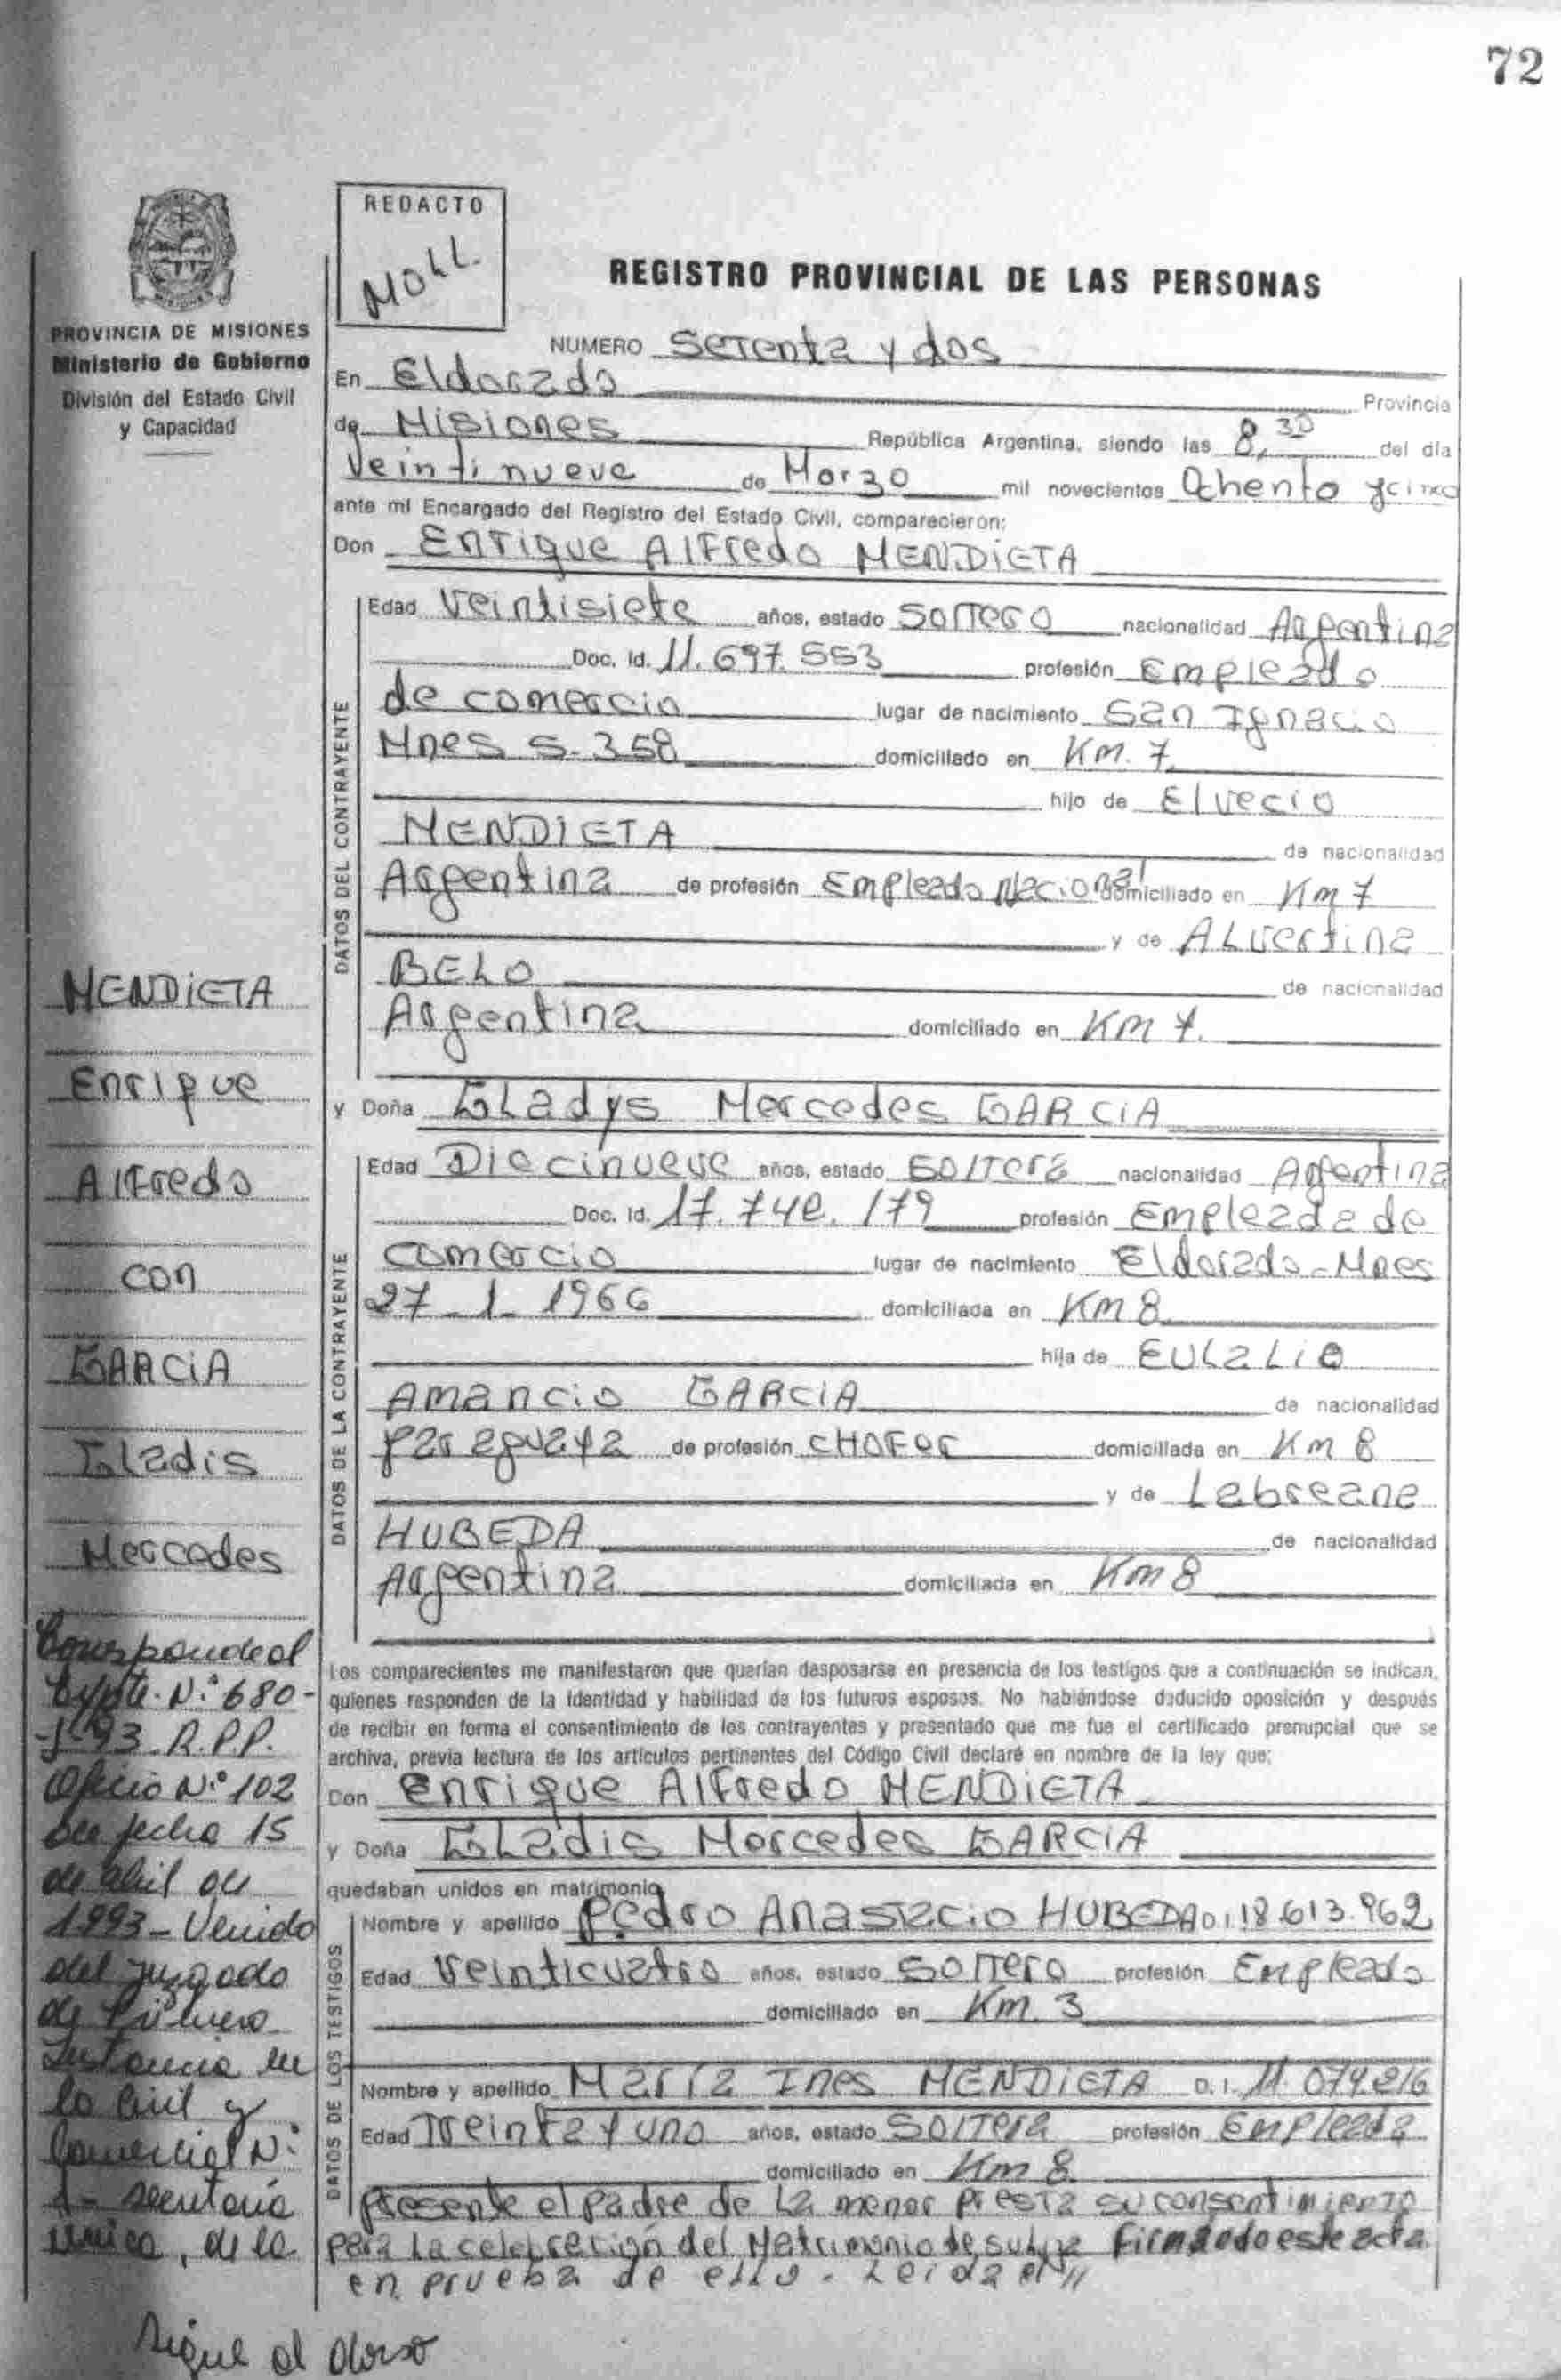 72
REDACTO
MOLL.
PROVINCIA DE MISIONES
Ministerio de Gobierno
División del Estado Civil
y Capacidad
REGISTRO PROVINCIAL DE LAS PERSONAS
NUMERO Setenta y dos
En Eldorado Provincia
de Misiones República Argentina, siendo las 8,30 del día
Veintinueve de Marzo mil novecientos Ochenta y cinco
ante mi Encargado del Registro del Estado Civil, comparecieron:
Don Enrique Alfredo MENDIETA
DATOS DEL CONTRAYENTE
Edad Veintisiete años, estado Soltero nacionalidad Argentina
Doc. Id. 11.697.553 profesión Empleado
de comercio lugar de nacimiento San Ignacio
Mnes 5-358 domiciliado en Km. 7
hijo de Elvecio
MENDIETA de nacionalidad
Argentina de profesión Empleado Nacional domiciliado en Km 7
y de ALvertina
BELO de nacionalidad
Argentina domiciliado en Km 7.
y Doña GLadys Mercedes GARCIA
DATOS DE LA CONTRAYENTE
Edad Diecinueve años, estado Soltera nacionalidad Argentina
Doc. Id. 17. 179 profesión Empleada de
comercio lugar de nacimiento Eldorado-Mnes
27-1-1966 domiciliada en Km 8
hija de EULaLio
Amancio GARCIA de nacionalidad
paraguaya de profesión CHOFer domiciliada en Km 8
y de Labreana
HUBEDA de nacionalidad
Argentina domiciliada en Km 8
Los comparecientes me manifestaron que querían desposarse en presencia de los testigos que a continuación se indican,
quienes responden de la identidad y habilidad de los futuros esposos. No habiéndose deducido oposición y después
de recibir en forma el consentimiento de los contrayentes y presentado que me fue el certificado prenupcial que se
archiva, previa lectura de los artículos pertinentes del Código Civil declaré en nombre de la ley que:
Don Enrique Alfredo MENDIETA
y Doña GLadis Mercedes GARCIA
quedaban unidos en matrimonio
DATOS DE LOS TESTIGOS
Nombre y apellido Pedro Anastacio HUBEDA D.I 18.613.962
Edad Veinticuatro años, estado Soltero profesión Empleado
domiciliado en Km. 3
Nombre y apellido María Ines MENDIETA D.I. 11.074.216
Edad Treinta y uno años, estado Soltera profesión Empleada
domiciliado en Km 8
Presente el padre de La menor presta su consentimiento
para La celebración del Matrimonio de su hija firmando este acta
en prueba de ello. Leida el//
MENDIETA
Enrique
Alfredo
con
GARCIA
GLadis
Mercedes
Corresponde al
Expte. N° 680-
-J-93 R.P.P.
Oficio N° 102
de fecha 15
de abril de
1993 - Venido
del Juzgado
de Primera
Instancia en
lo Civil y
Comercial N°
1- secretaría
única, de la
Sigue al dorso